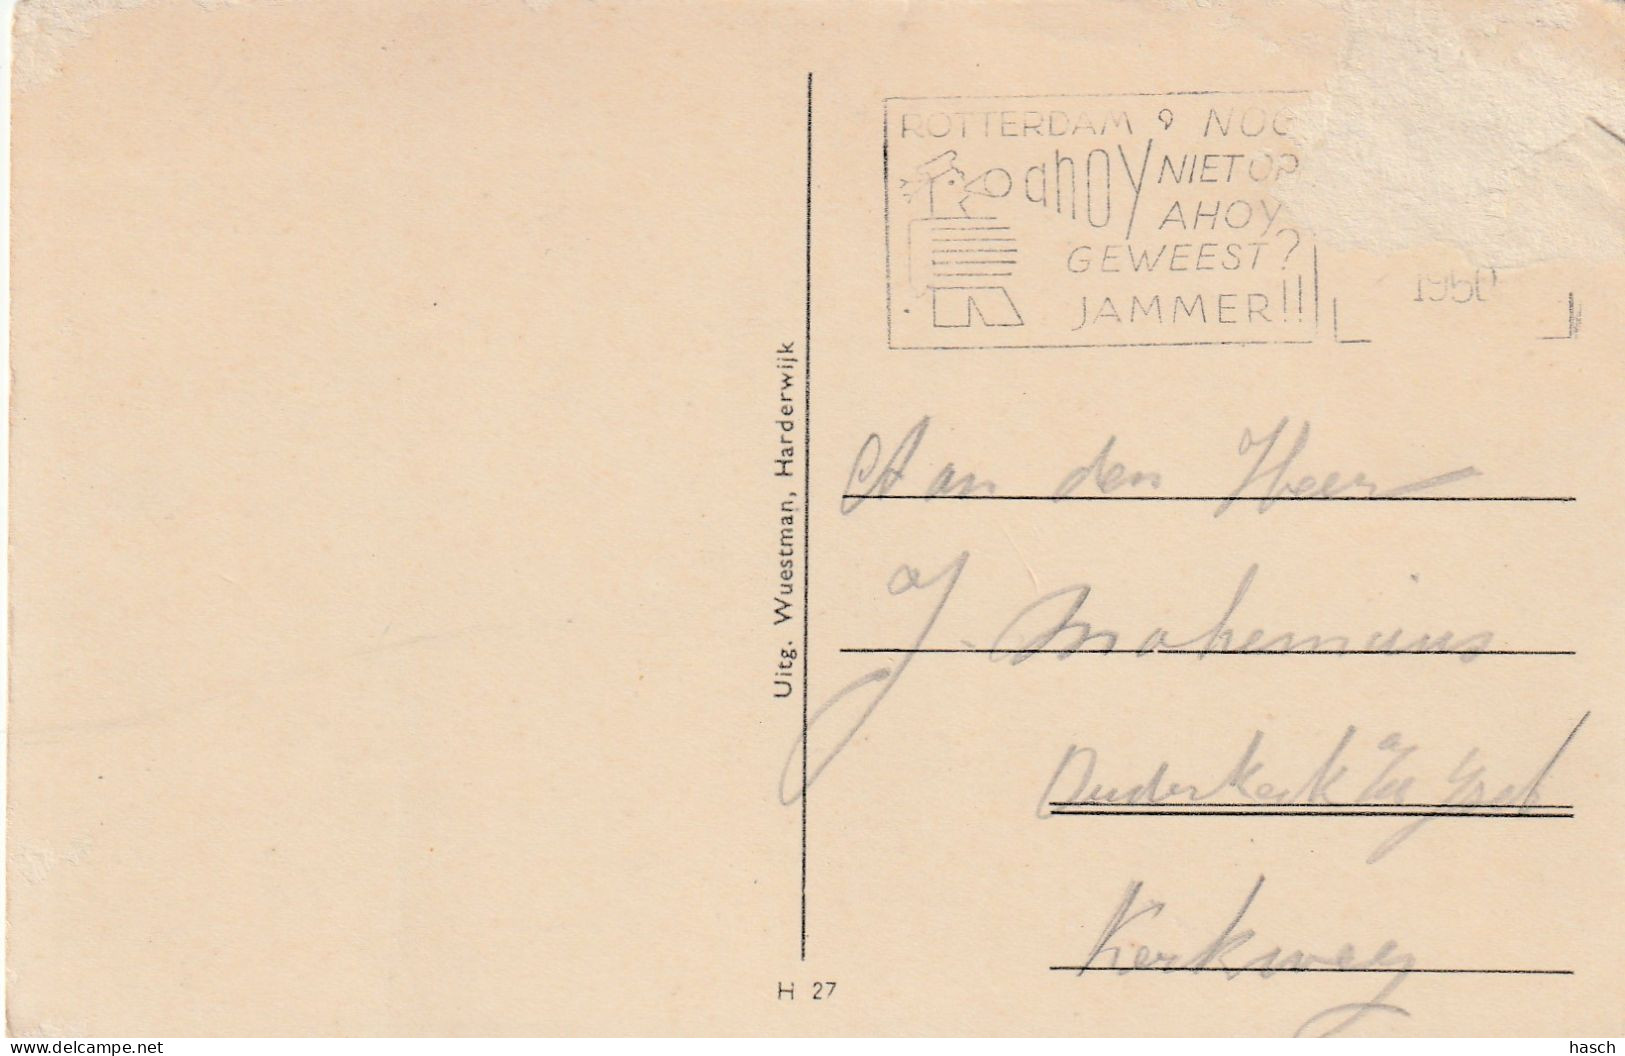 ROTTERDAM NOG
ahoy NIET OP
AHOY
GEWEEST?
JAMMER!!
1950
Uitg. Wuestman, Harderwijk
Aan den Heer
J.
Ouderkerk a/d Ysel
Kerkweg
H 27
hasch
www.delcampe.net